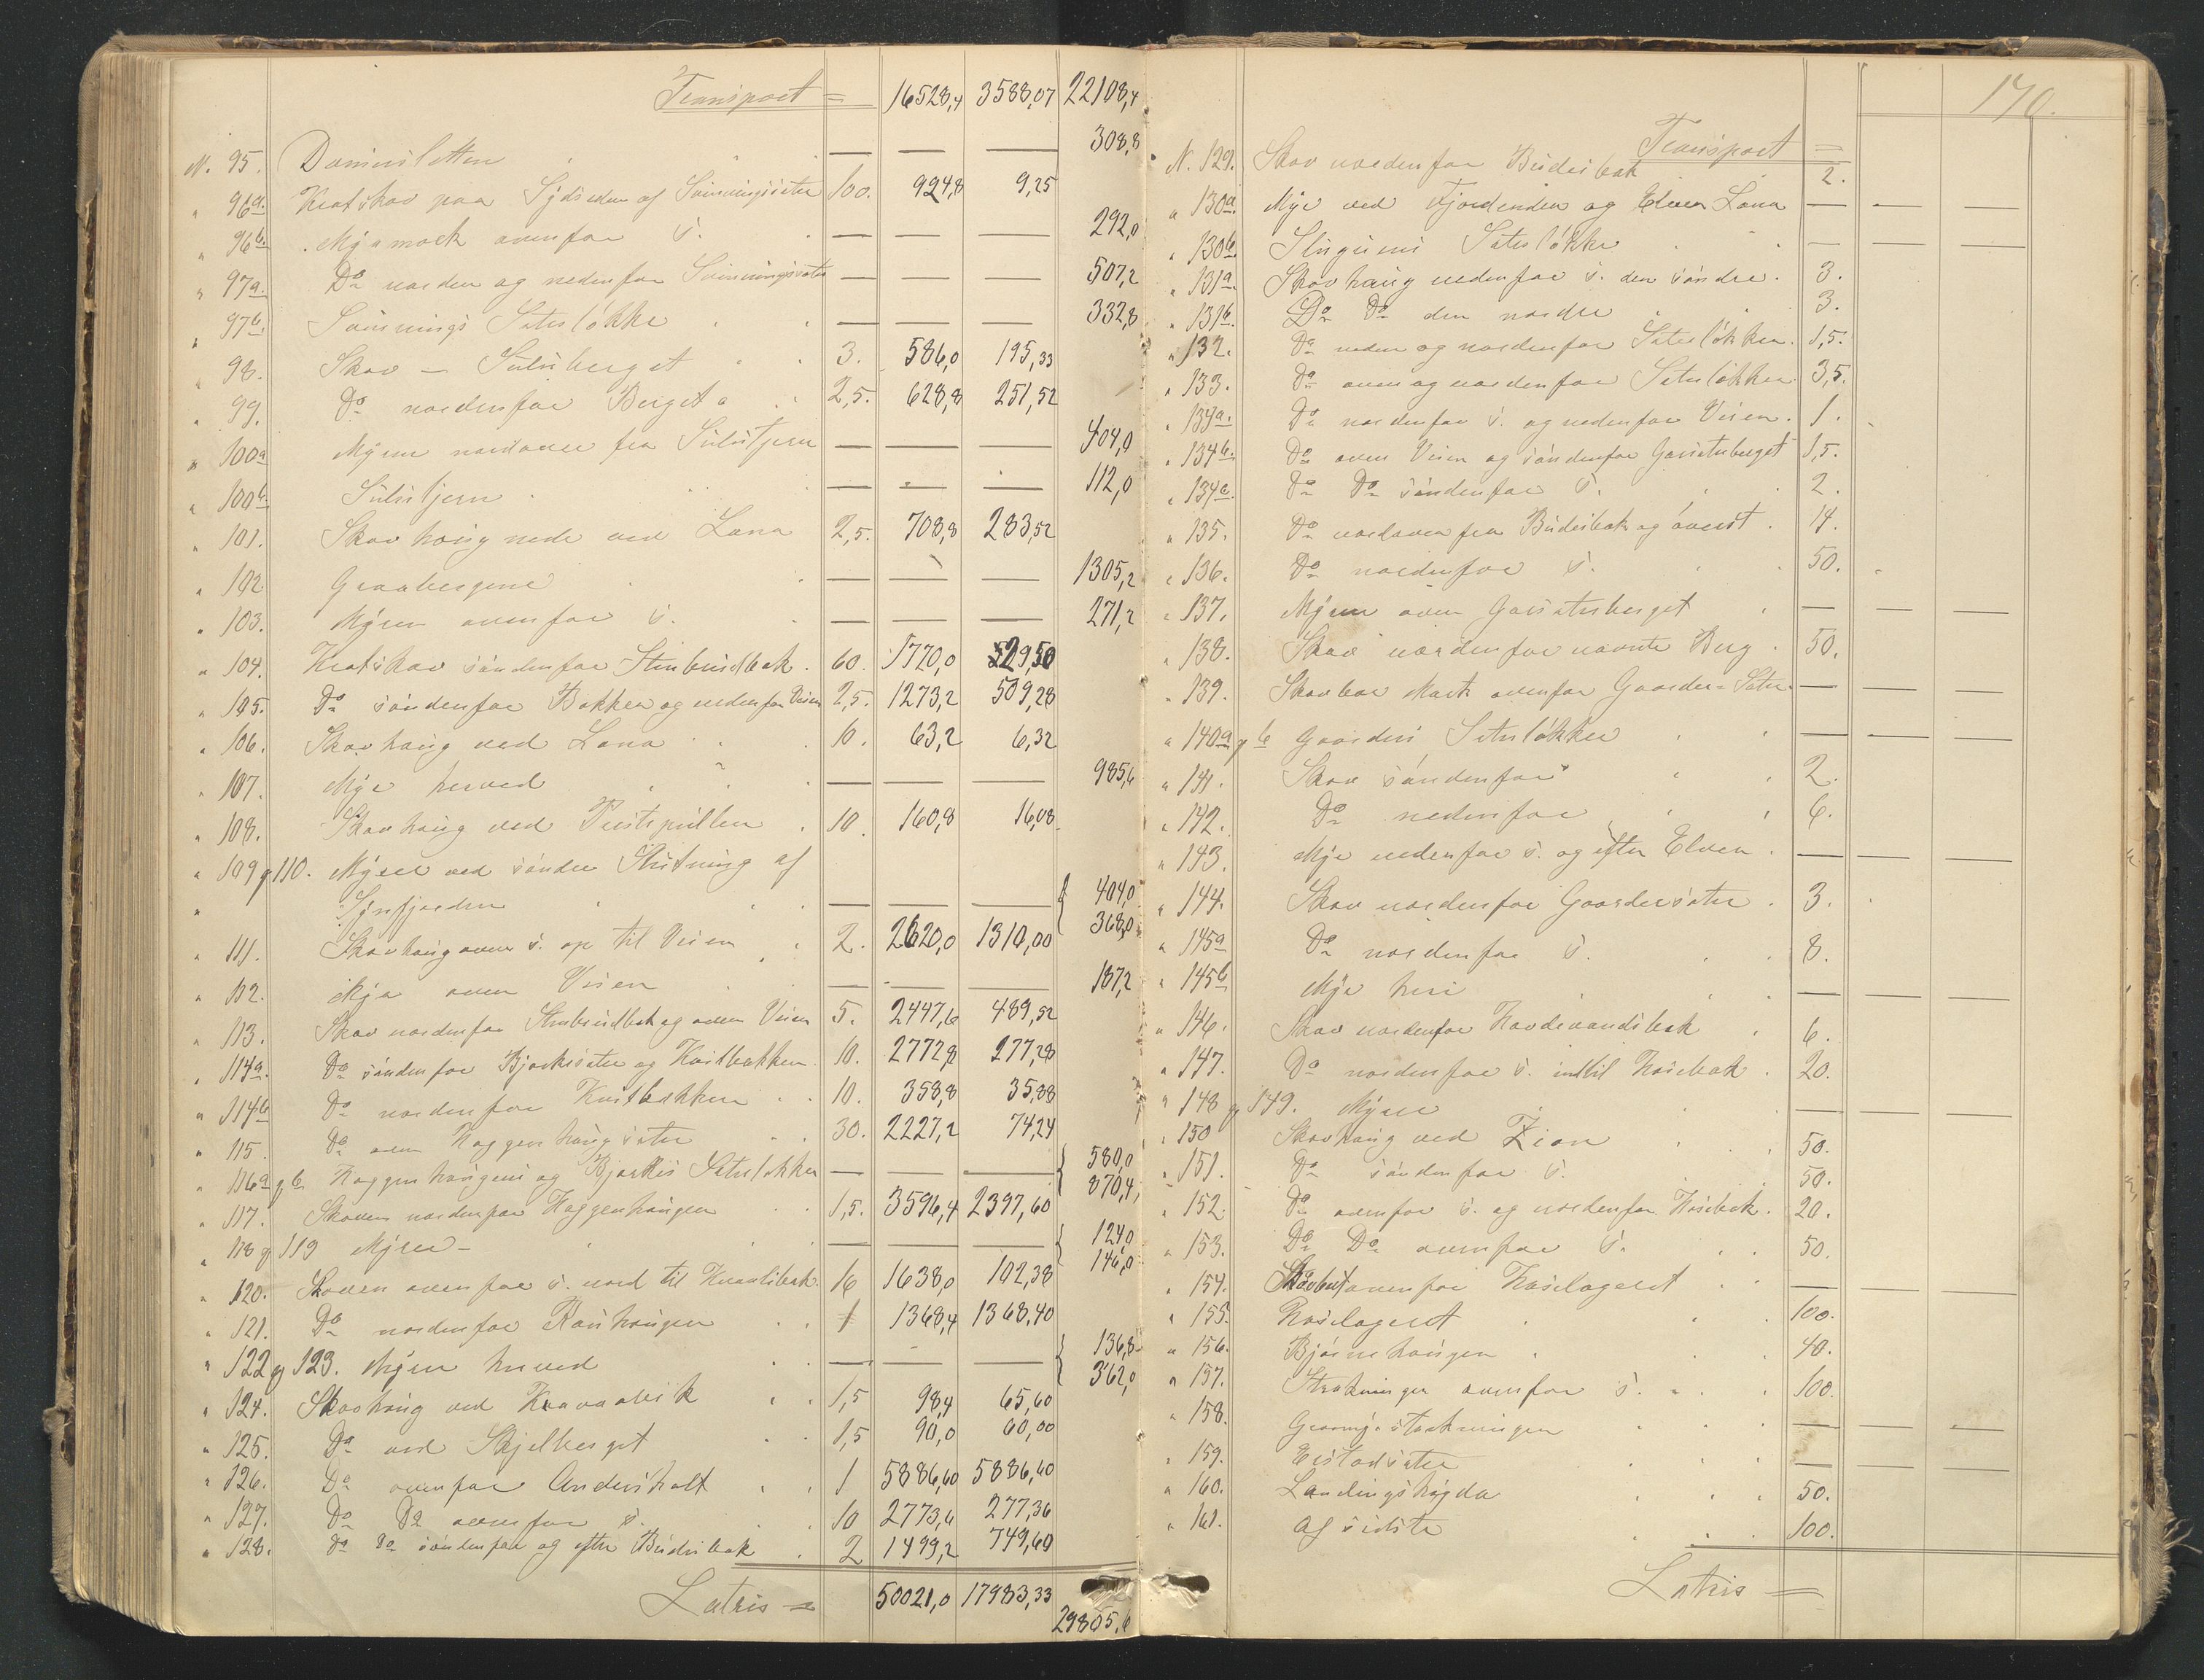 Transport = 16528,4 3588,07 22108,4
N. 95. — — — 308,8
" 96a. Kratskov paa Sydsiden af Svinningssæter 100. 924,8 9,25
" 96b. Myrmark ovenfor s. — — — 292,0
" 97a. Do norden og nedenfor Svinningsæter — — — 507,2
" 97b. Svinnings Sæterløkke — — — 332,8
" 98. Skov — Sulusberget 3. 586,0 195,33
" 99. Do nordenfor Berget 2,5. 628,8 251,52
" 100a Myren nordover fra Sulustjern — — — 404,0
" 100b. Sulustjern — — — 112,0
" 101. Skovhaug nede ved Lona 2,5. 708,8 283,52
" 102 Graabergene — — — 1305,2
" 103. Myren ovenfor s. — — — 271,2
" 104. Kratskov søndenfor Stenbusdbæk. 60. 1770,0 529,50
" 105. Do søndenfor Bakken og nedenfor Veien 2,5. 1273,2 509,28
" 106. Skovhaug ved Lona 10. 63,2 6,32
" 107. Myr herved — — — 985,6
" 108. Skovhaug ved 10. 160,8 16,08
" 109 g 110. Myrer ved søndre Slutning af
" Synfjorden — — — 404,0 368,0
" 111. Skovhaug oven s. op til Veien 2. 2620,0 1310,00
" 112. Myr oven Veien — — — 187,2
" 113. Skov nordenfor og oven Veien 5. 2447,6 489,52
" 114a. Do søndenfor Bjørkesæter og Kvitbakken 10. 2772,8 277,28
" 114b Do nordenfor Kvitbakken 10. 358,8 35,88
" 115. Do oven Haggenhaugsæter 30. 2227,2 74,24
" 116a g b. Haggenhaugens og Sæterløkker — — — 580,0 870,4
" 117. Skoven nordenfor Haggenhaugen 1,5. 3596,4 2397,60
" 118 g 119 Myrer — — — — 124,0 146,0
" 120. Skoven ovenfor s. nord til 16 1638,0 102,38
" 121. Do nordenfor 1 1368,4 1368,40
" 122 g 123. Myrer herved — — — 136,8 362,0
" 124. Skovhaug ved 1,5 98,4 65,60
" 125. Do ved Skjelberget 1,5 90,0 60,00
" 126. Do ovenfor Andersholt 1 5886,40 5886,40
" 127. Do Do ovenfor s. 10 2773,6 277,36
" 128. Do Do søndenfor og efter Budesbæk 2 1499,2 749,60
Latris = 50021,0 17983,33 29805,6
170.
Transport =
N. 129. Skov nordenfor Budesbæk 2.
" 130a. Myr ved Fjordenden og Elven Lona — — —
" 130b. Sæterløkke — — —
" 131a. Skovhaug nedenfor s. den søndre. 3.
" 131b. Do Do den nordre 3.
" 132. Do neden og nordenfor Sæterløkken. 1,5.
" 133. Do oven og nordenfor Sæterløkken 3,5.
" 134a. Do nordenfor s. og nedenfor Veien. 1.
" 134b. Do oven Veien og søndenfor 1,5.
" 134c. Do Do søndenfor s. 2.
" 135. Do nordover fra Budesbæk og øverst. 14.
" 136. Do nordenfor s. 50.
" 137. Myrer oven — — —
" 138. Skov nordenfor nævnte Berg. 50.
" 139. Skovbar Mark ovenfor Gaarder-Sæter — — —
" 140a g b Gaarders Sæterløkker — — —
" 141. Skov søndenfor " 2.
" 142. Do nedenfor 6.
" 143. Myr nedenfor s. og efter Elven. — — —
" 144. Skov nordenfor Gaardersæter. 3.
" 145a Do nordenfor s. 8.
" 145b Myr heri — — —
" 146. Skov nordenfor 6.
" 147. Do nordenfor s. indtil Kosebæk. 20.
" 148 g 149. Myrer — — —
" 150 Skovhaug ved Zion 50.
" 151. Do søndenfor s. 50.
" 152. Do ovenfor s. og nordenfor Kosebæk. 20.
" 153. Do Do ovenfor s. 50.
" 154. ovenfor Koselægeret — — —
" 155. Koselægeret 100.
" 156. Bjørnehaugen 40.
" 157. Strækninger ovenfor s. 100.
" 158. strækningen — — —
" 159. — — —
" 160. Landingshøgda 50.
" 161. af sidste 100.
Latris =